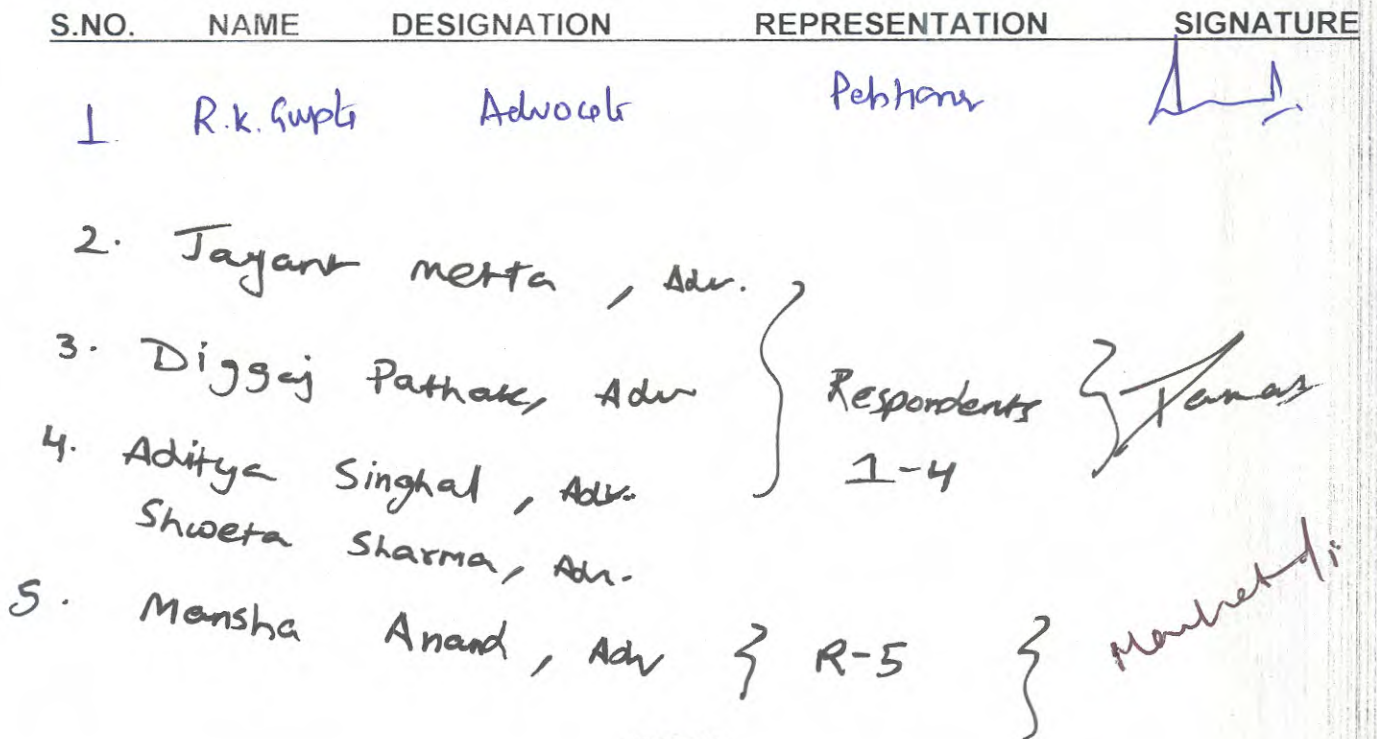 S.NO. NAME DESIGNATION REPRESENTATION SIGNATURE
1 R.K. Gupta Advocate Petitioner
2. Jayant Mehta, Adv.
3. Diggaj Pathak, Adv
Respondents
1-4
4. Aditya Singhal, Adv.
Shweta Sharma, Adv.
5. Mansha Anand, Adv R-5